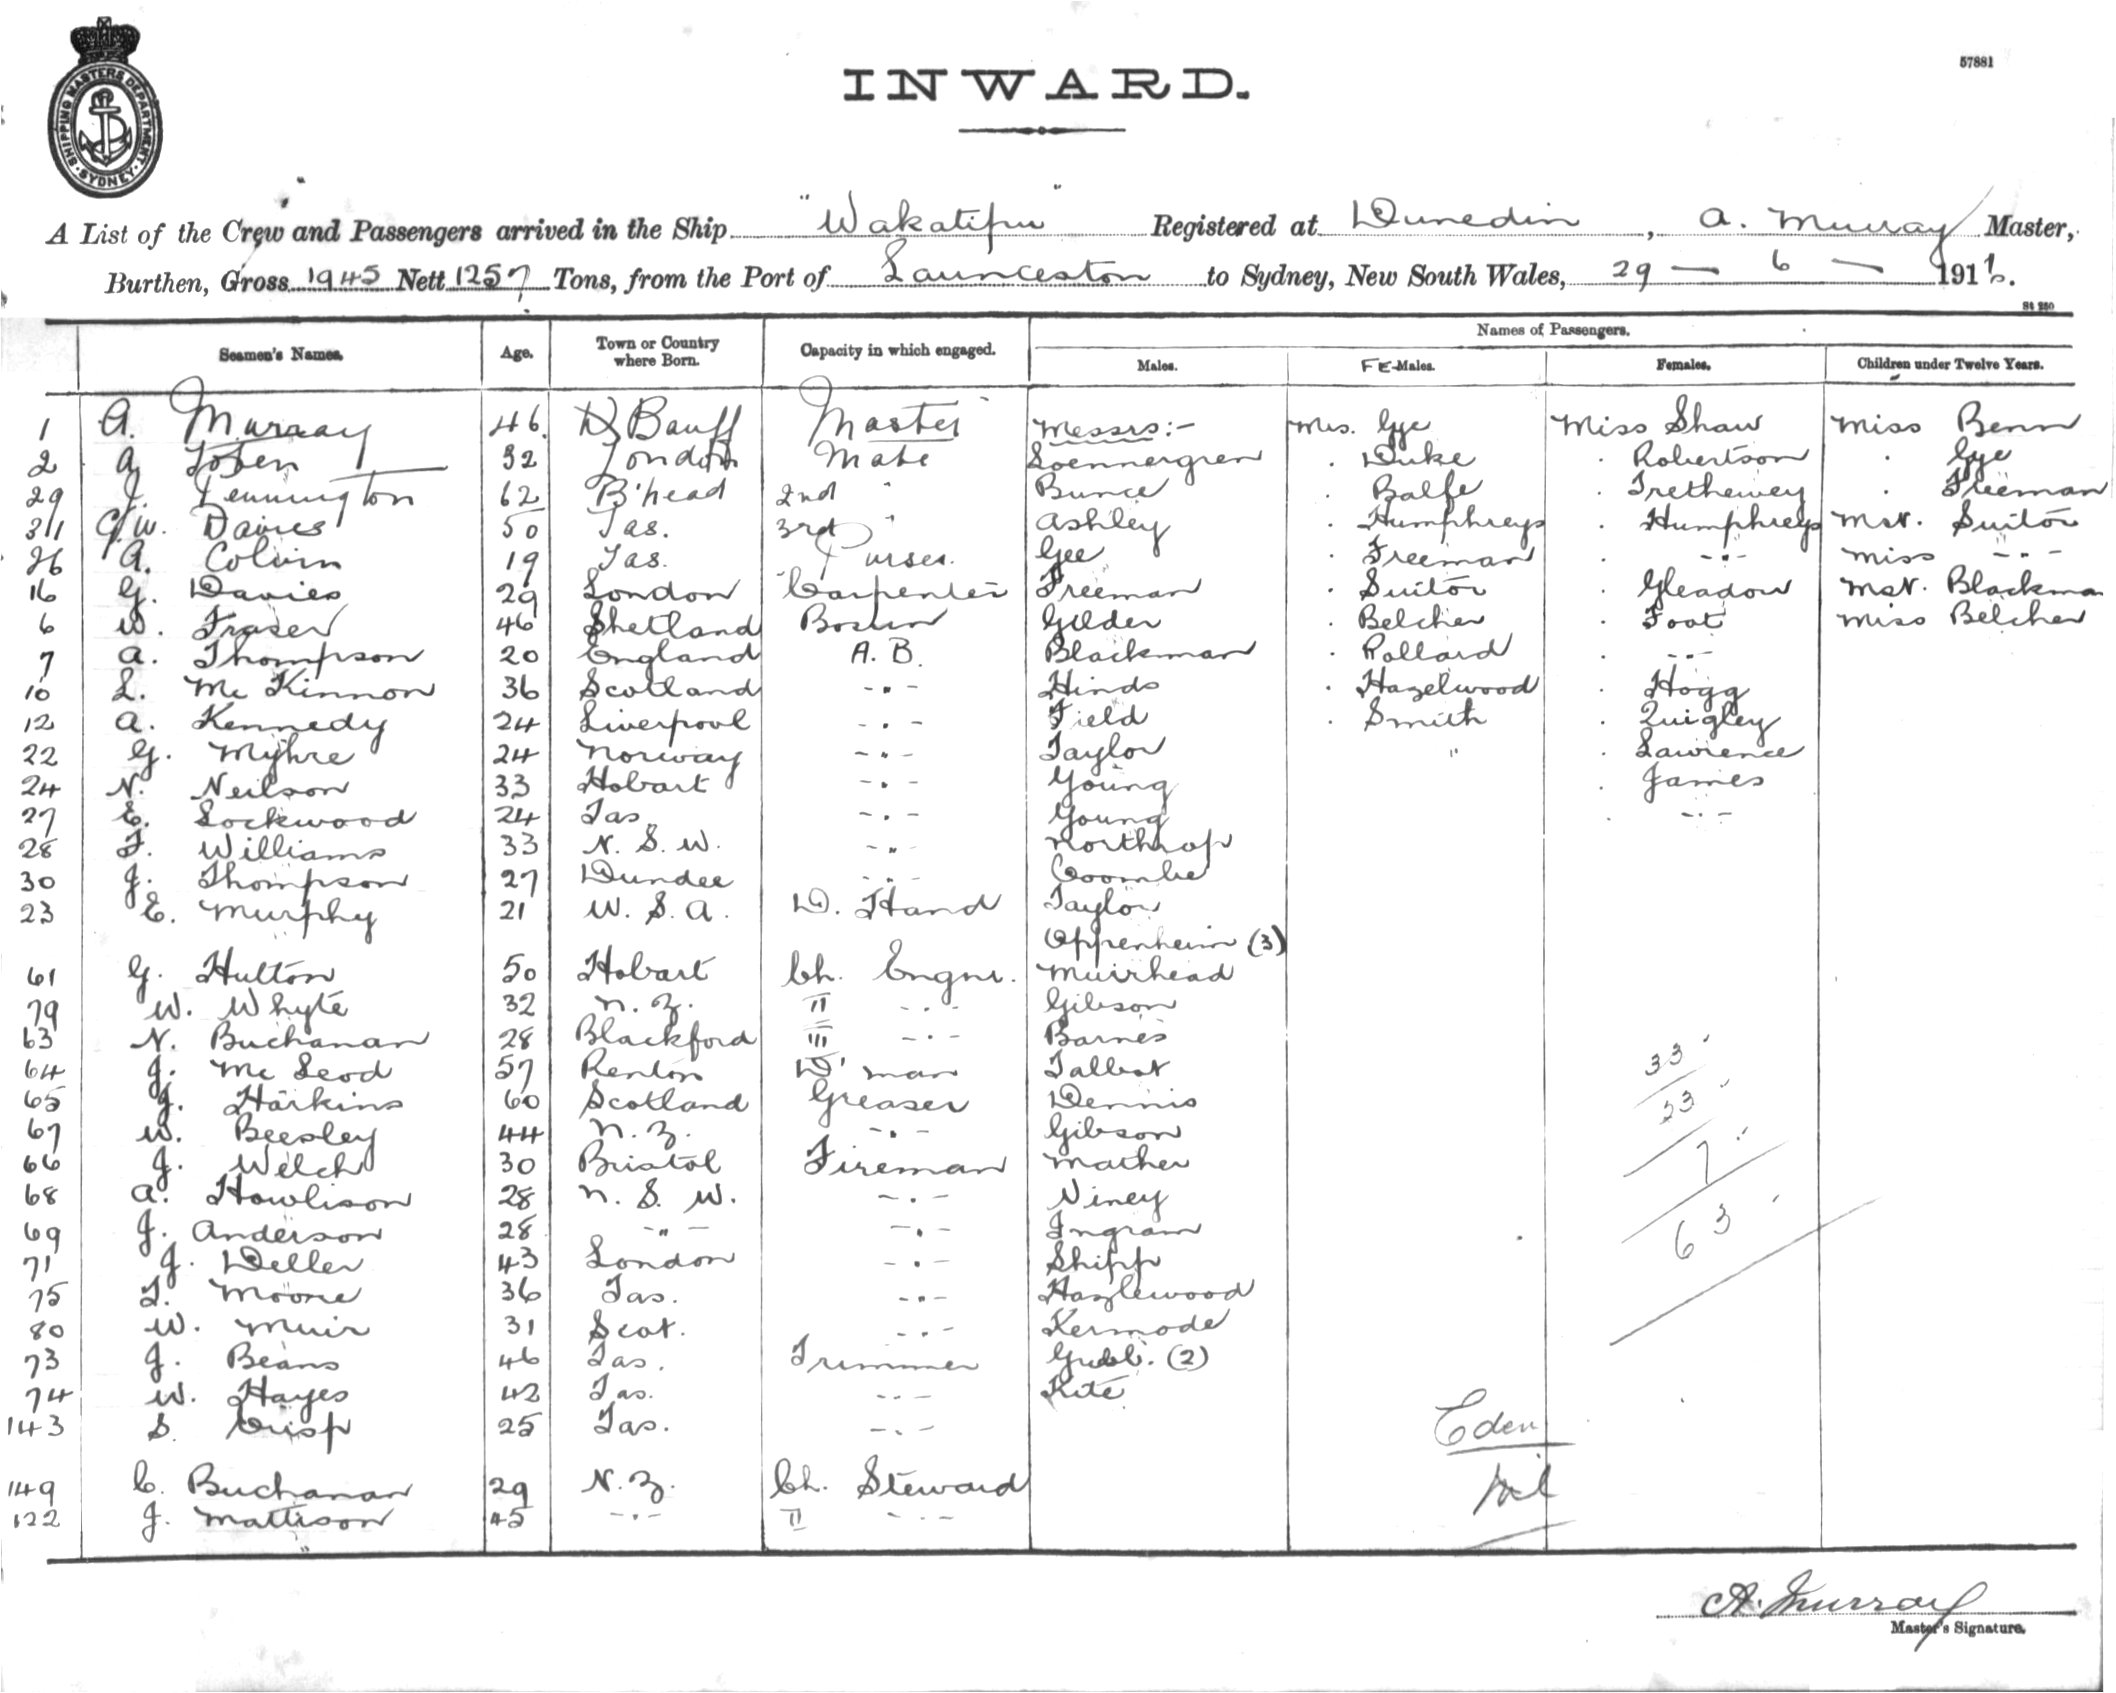 SHIPPING MASTERS DEPARTMENT · SYDNEY ·
INWARD.
57881
A List of the Crew and Passengers arrived in the Ship "Wakatipu" Registered at Dunedin, A. Murray Master,
Burthen, Gross 1945 Nett 1257 Tons, from the Port of Launceston to Sydney, New South Wales, 29 — 6 — 191
St 250
Names of Passengers.
Seamen's Names. Age. Town or Country where Born. Capacity in which engaged. Males. FE-Males. Females. Children under Twelve Years.
1 A. Murray 46. Banff Master Messrs:- Mrs. Gye Miss Shaw Miss Benn
2 A. Toben 32 London Mate Soennergren . Duke . Robertson . Gye
29 J. Lennington 62 B'head 2nd " Bunce . Balfe . Trethewey . Freeman
311 C.W. Davies 50 Tas. 3rd " Ashley . Humphreys . Humphreys Mstr. Suitor
26 A. Colvin 19 Tas. Purser. Gee . Freeman . -"- Miss -"-
16 G. Davies 29 London Carpenter Freeman . Suitor . Gleadow Mstr. Blackman
6 W. Fraser 46 Shetland Bosun Gilder . Belcher . Foot Miss Belcher
7 A. Thompson 20 England A.B. Blackman . Pollard . -"-
10 L. McKinnon 36 Scotland -"- Hinds . Hazelwood . Hogg
12 A. Kennedy 24 Liverpool -"- Field . Smith . Quigley
22 G. Myhre 24 Norway -"- Taylor " . Lawrence
24 N. Neilson 33 Hobart -"- Young . James
27 E. Lockwood 24 Tas -"- Young . -"-
28 F. Williams 33 N.S.W. -"- Northrop
30 J. Thompson 27 Dundee -"- Coombe
23 E. Murphy 21 U.S.A. D. Hand Taylor
Oppenheim (3)
61 G. Hutton 50 Hobart Ch. Engnr. Muirhead
79 W. Whyte 32 N.Z. II -"- Gibson
63 N. Buchanan 28 Blackford III -"- Barnes
64 J. McLeod 57 Renton D'man Talbot
65 J. Harkins 60 Scotland Greaser Dennis
67 W. Beesley 44 N.Z. -"- Gibson
66 J. Welch 30 Bristol Fireman Mather
68 A. Howlison 28 N.S.W. -"- Niney
69 J. Anderson 28 -"- -"- Ingram
71 J. Deller 43 London -"- Shipp
75 T. Moore 36 Tas. -"- Hazlewood
80 W. Muir 31 Scot. -"- Kermode
73 J. Beans 46 Tas. Trimmer Gubb. (2)
74 W. Hayes 42 Tas. -"- Kite
143 S. Crisp 25 Tas. -"-
149 C. Buchanan 29 N.Z. Ch. Steward
122 J. Mattison 45 -"- II -"-
33
23
7
63
Eden
Nil
A. Murray
Master's Signature.